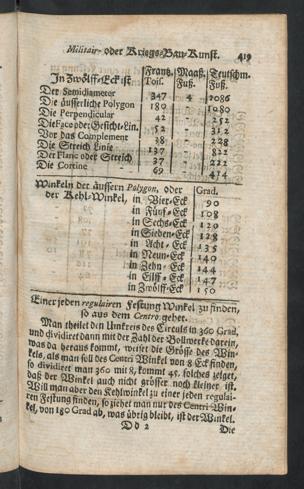 Militair- oder Kriegs-Bau-Kunst. 419
In Zwölff-Eck ist Frantz. Toif. Maaß. Fuß. Teutschm. Fuß.
Der Semidiameter 347 4 2086
Die äusserliche Polygon 180 1080
Die Perpendicular 42 252
Die Face oder Gesicht-Lin. 52 312
Vor das Complement 38 228
Die Streich Linie 137 822
Der Flanc oder Streich 37 222
Die Cortine 69 414
Winckeln der äussern Polygon, oder Grad.
der Kehl-Winckel, in Vier-Eck 90
in Fünf-Eck 108
in Sechs-Eck 120
in Sieben-Eck 128
in Acht-Eck 135
in Neun-Eck 140
in Zehn-Eck 144
in Eilff-Eck 147
in Zwölff-Eck 150
Einer jeden regulairen Festung Winckel zu finden,
so aus dem Centro gehet.
Man theilet den Umkreis des Circuls in 360 Grad,
und dividiret dann mit der Zahl der Bollwercke darein,
was da heraus kommt, weiset die Grösse des Win-
kels, als man soll des Centri Winckel von 8 Eck finden,
so dividiret man 360 mit 8, kommt 45. solches zeiget,
daß der Winckel auch nicht grösser noch kleiner ist.
Will man aber den Kehlwinckel zu einer jeden regulai-
ren Festung finden, so ziehet man nur des Centri Win-
kel, von 180 Grad ab, was übrig bleibt, ist der Winckel.
Dd 2 Die